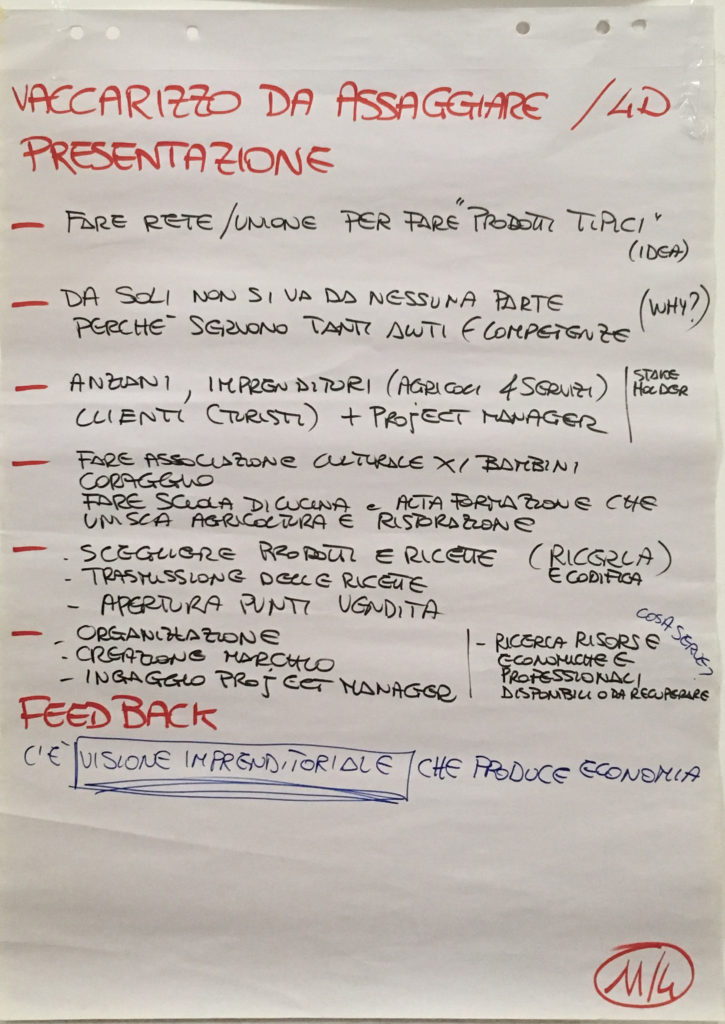 VACCARIZZO DA ASSAGGIARE / 4D
PRESENTAZIONE
— FARE RETE / UNIONE PER FARE "PRODOTTI TIPICI"
(IDEA)
— DA SOLI NON SI VA DA NESSUNA PARTE (WHY?)
PERCHÈ SERVONO TANTI AIUTI E COMPETENZE
— ANZIANI, IMPRENDITORI (AGRICOLI & SERVIZI) | STAKE
HOLDER
CLIENTI (TURISTI) + PROJECT MANAGER
— FARE ASSOCIAZIONE CULTURALE X/ BAMBINI
CORAGGIO
FARE SCUOLA DI CUCINA e ALTA FORMAZIONE CHE
UNISCA AGRICOLTURA E RISTORAZIONE
— . SCEGLIERE PRODOTTI E RICETTE (RICERCA)
E CODIFICA
- TRASMISSIONE DELLE RICETTE
- APERTURA PUNTI VENDITA
— - ORGANIZZAZIONE
- CREAZIONE MARCHIO
- INGAGGIO PROJECT MANAGER
COSA SERVE?
- RICERCA RISORSE
ECONOMICHE E
PROFESSIONALI
DISPONIBILI O DA RECUPERARE
FEEDBACK
C'È VISIONE IMPRENDITORIALE CHE PRODUCE ECONOMIA
11/4